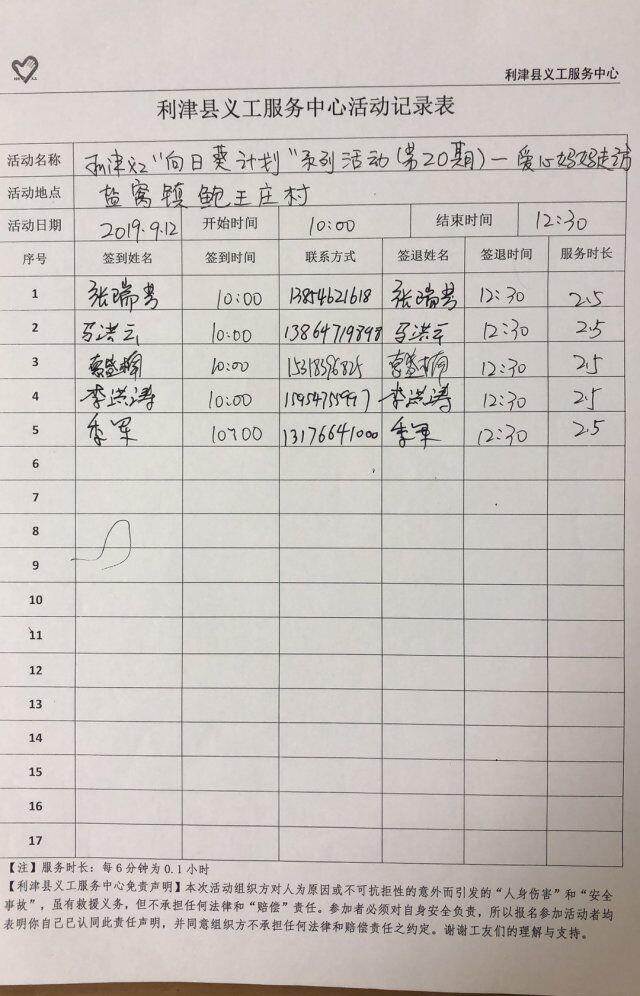 利津县义工服务中心
利津县义工服务中心活动记录表
活动名称 利津义工"向日葵计划"系列活动(第20期)—爱心妈妈走访
活动地点 盐窝镇鲍王庄村
活动日期 2019.9.12 开始时间 10:00 结束时间 12:30
序号 签到姓名 签到时间 联系方式 签退姓名 签退时间 服务时长
1 张瑞芳 10:00 13854621618 张瑞芳 12:30 2.5
2 马洪云 10:00 13864719898 马洪云 12:30 2.5
3 10:00 15318396825 12:30 2.5
4 李洪涛 10:00 15954755997 李洪涛 12:30 2.5
5 季军 10:00 13176641000 季军 12:30 2.5
6
7
8
9
10
11
12
13
14
15
16
17
【注】服务时长：每6分钟为0.1小时
【利津县义工服务中心免责声明】本次活动组织方对人为原因或不可抗拒性的意外而引发的“人身伤害”和“安全
事故”，虽有救援义务，但不承担任何法律和“赔偿”责任。参加者必须对自身安全负责，所以报名参加活动者均
表明你自己已认同此责任声明，并同意组织方不承担任何法律和赔偿责任之约定。谢谢工友们的理解与支持。